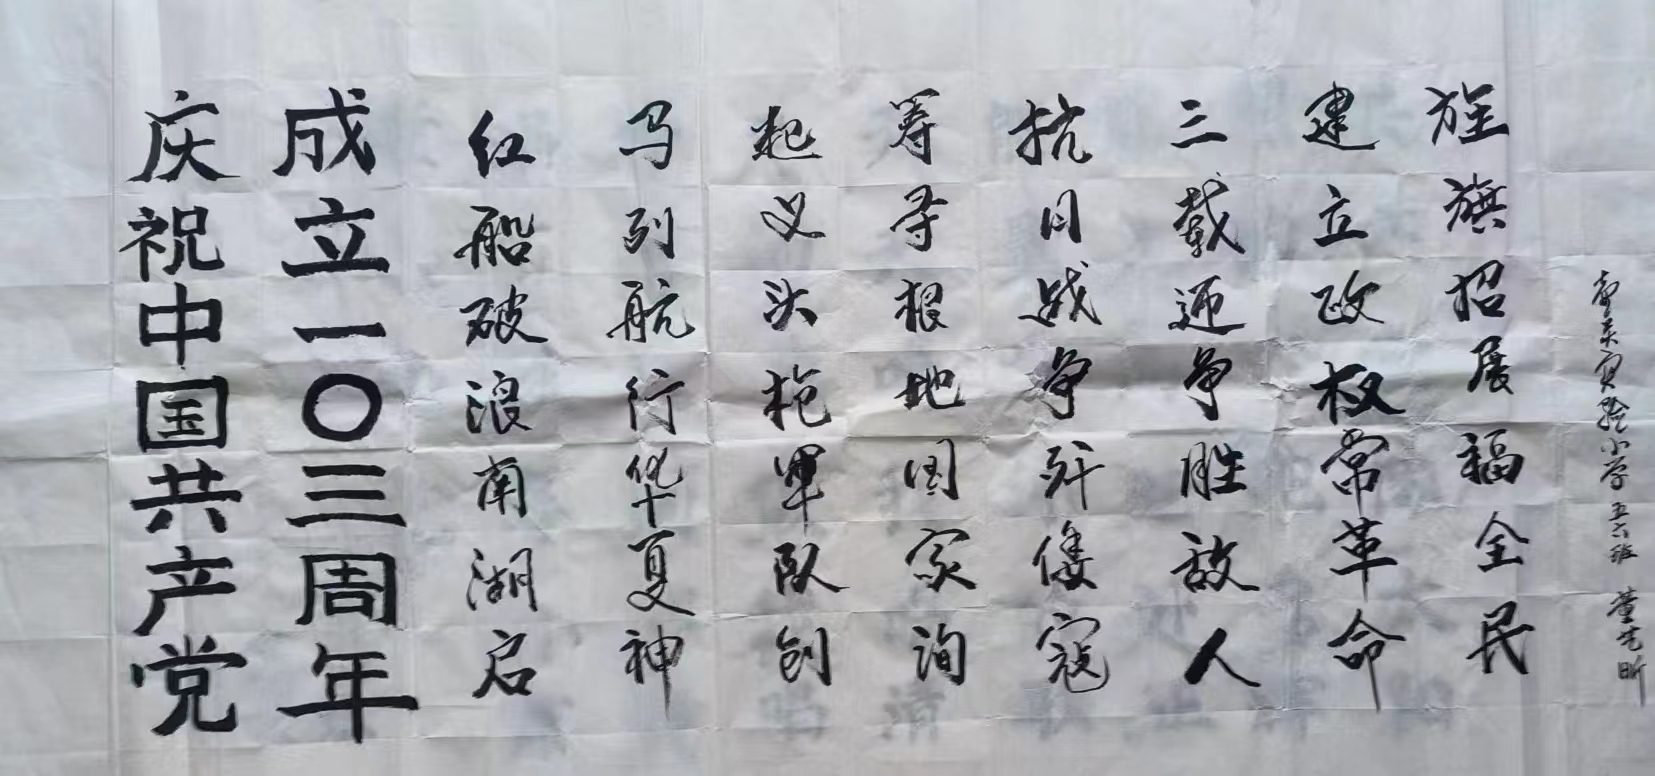 庆祝中国共产党
成立一〇三周年
红船破浪南湖启
马列航行华夏神
起义头枪军队创
筹寻根地国家询
抗日战争歼倭寇
三载迎争胜敌人
建立政权常革命
旌旗招展福全民
实验小学五六班 董艺昕